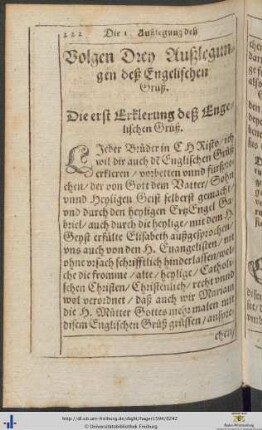 222 Die 1. Außlegung deß
Volgen Drey Außlegun-
gen deß Engelischen
Gruß.
Die erst Erklerung deß Enge-
lischen Gruß.
LIeber Brüder in CHRisto, ich
wil dir auch dē Englischen Gruß
erkleren / vorbetten vnnd fürspre-
chen / der von Gott dem Vatter / Sohn
vnnd Heyligen Geist selberst gemacht /
vnd durch den heyligen ErtzEngel Ga-
briel / auch durch die heylige / mit dem H.
Geyst erfülte Elisabeth außgesprochen /
vns auch von den H. Euangelisten / nit
ohne vrsach schrifftlich hinderlassen / wel-
che die fromme / alte / heylige / Catholi-
schen Christen / Christenlich / recht vnnd
wol verordnet / daß auch wir Mariam
die H. Mütter Gottes mehr malen mit
disem Englischen Gruß grüssen / anspre-
chen /
http://dl.ub.uni-freiburg.de/diglit/hager1594/0242
© Universitätsbibliothek Freiburg
Baden-Württemberg